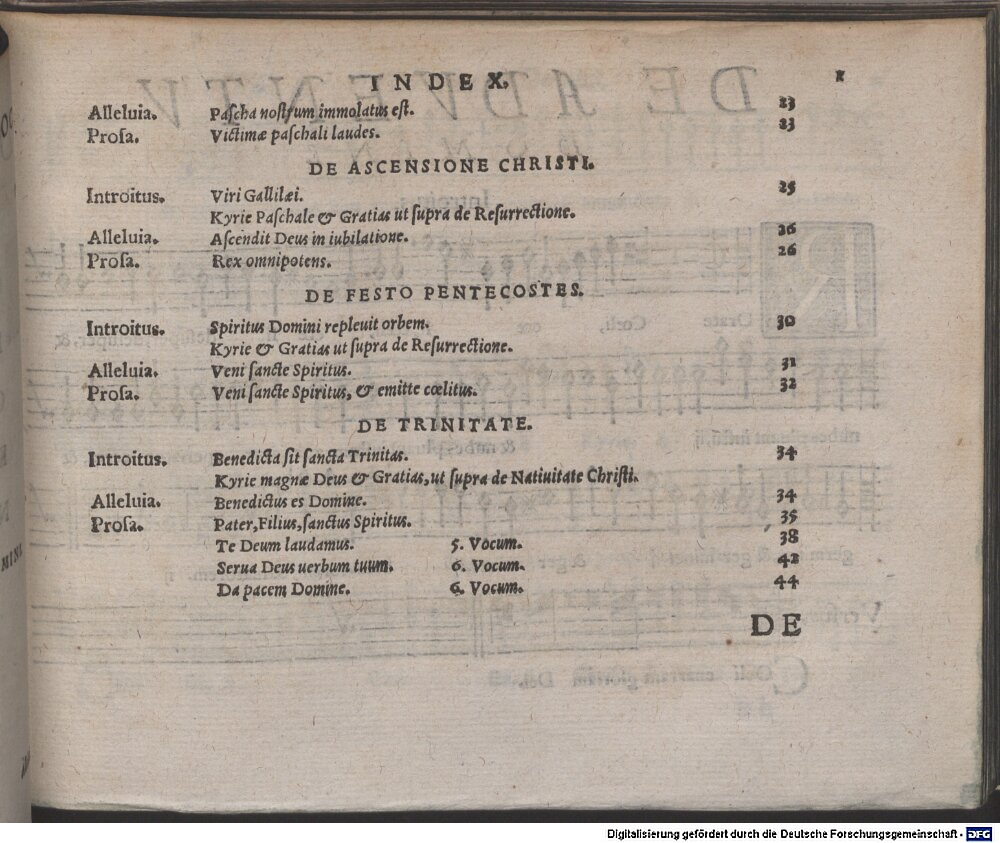 INDEX.
Alleluia. Paſcha noſtrum immolatus eſt. 23
Proſa. Victimæ paſchali laudes. 23
DE ASCENSIONE CHRISTI.
Introitus. Viri Gallilæi. 25
Kyrie Paſchale & Gratias ut ſupra de Reſurrectione.
Alleluia. Aſcendit Deus in iubilatione. 26
Proſa. Rex omnipotens. 26
DE FESTO PENTECOSTES.
Introitus. Spiritus Domini repleuit orbem. 30
Kyrie & Gratias ut ſupra de Reſurrectione.
Alleluia. Veni ſancte Spiritus. 31
Proſa. Veni ſancte Spiritus, & emitte cœlitus. 32
DE TRINITATE.
Introitus. Benedicta ſit ſancta Trinitas. 34
Kyrie magnæ Deus & Gratias, ut ſupra de Natiuitate Chriſti.
Alleluia. Benedictus es Domine. 34
Proſa. Pater, Filius, ſanctus Spiritus. 35
Te Deum laudamus. 5. Vocum. 38
Serua Deus uerbum tuum. 6. Vocum. 42
Da pacem Domine. 6. Vocum. 44
DE
Digitalisierung gefördert durch die Deutsche Forschungsgemeinschaft - DFG